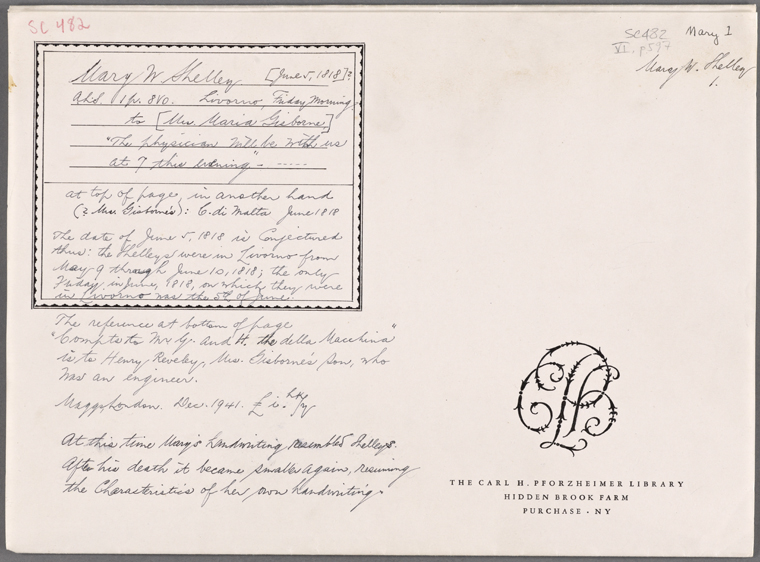 SC 482
SC482
VI. p597
Mary I
Mary W. Shelley
1.
Mary W Shelley [June 5, 1818]?
ALS. 1p. 8vo. Livorno, Friday Morning,
to [Mrs. Maria Gisborne,]
"The physician will be with us
at 7 this evening" - -----
at top of page, in another hand
(? Mrs. Gisborne's): C. di Malta June 1818
The date of June 5, 1818 is Conjectured
thus: the Shelleys were in Livorno from
May 9 through June 10, 1818; the only
Friday in June, 1818, on which they were
in Livorno was the 5th of June.
The reference at bottom of page
"Compts to Mr G. and H. the della Macchina"
is to Henry Reveley, Mrs. Gisborne's son, who
was an engineer.
Maggs London. Dec. 1941. £
At this time Mary's handwriting resembled Shelley's.
After his death it became smaller again, resuming
the Characteristics of her own handwriting.
THE CARL H. PFORZHEIMER LIBRARY
HIDDEN BROOK FARM
PURCHASE · NY